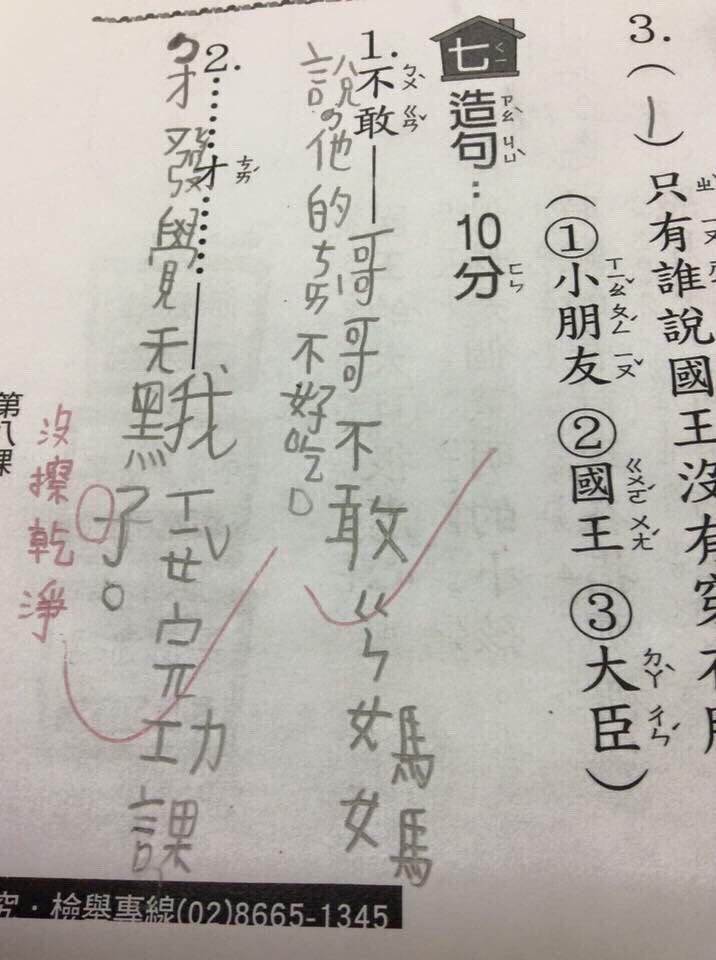 3.(1)只有誰說國王沒有穿不
(①小朋友 ②國王 ③大臣)
七 造句:10分
1.不敢——哥哥不敢ㄍㄣ媽媽
說他的ㄘㄞ不好吃。
2.……才……——我ㄒㄧㄝˇ完功課
才發覺天黑了。
沒擦乾淨
第八課
究·檢舉專線(02)8665-1345